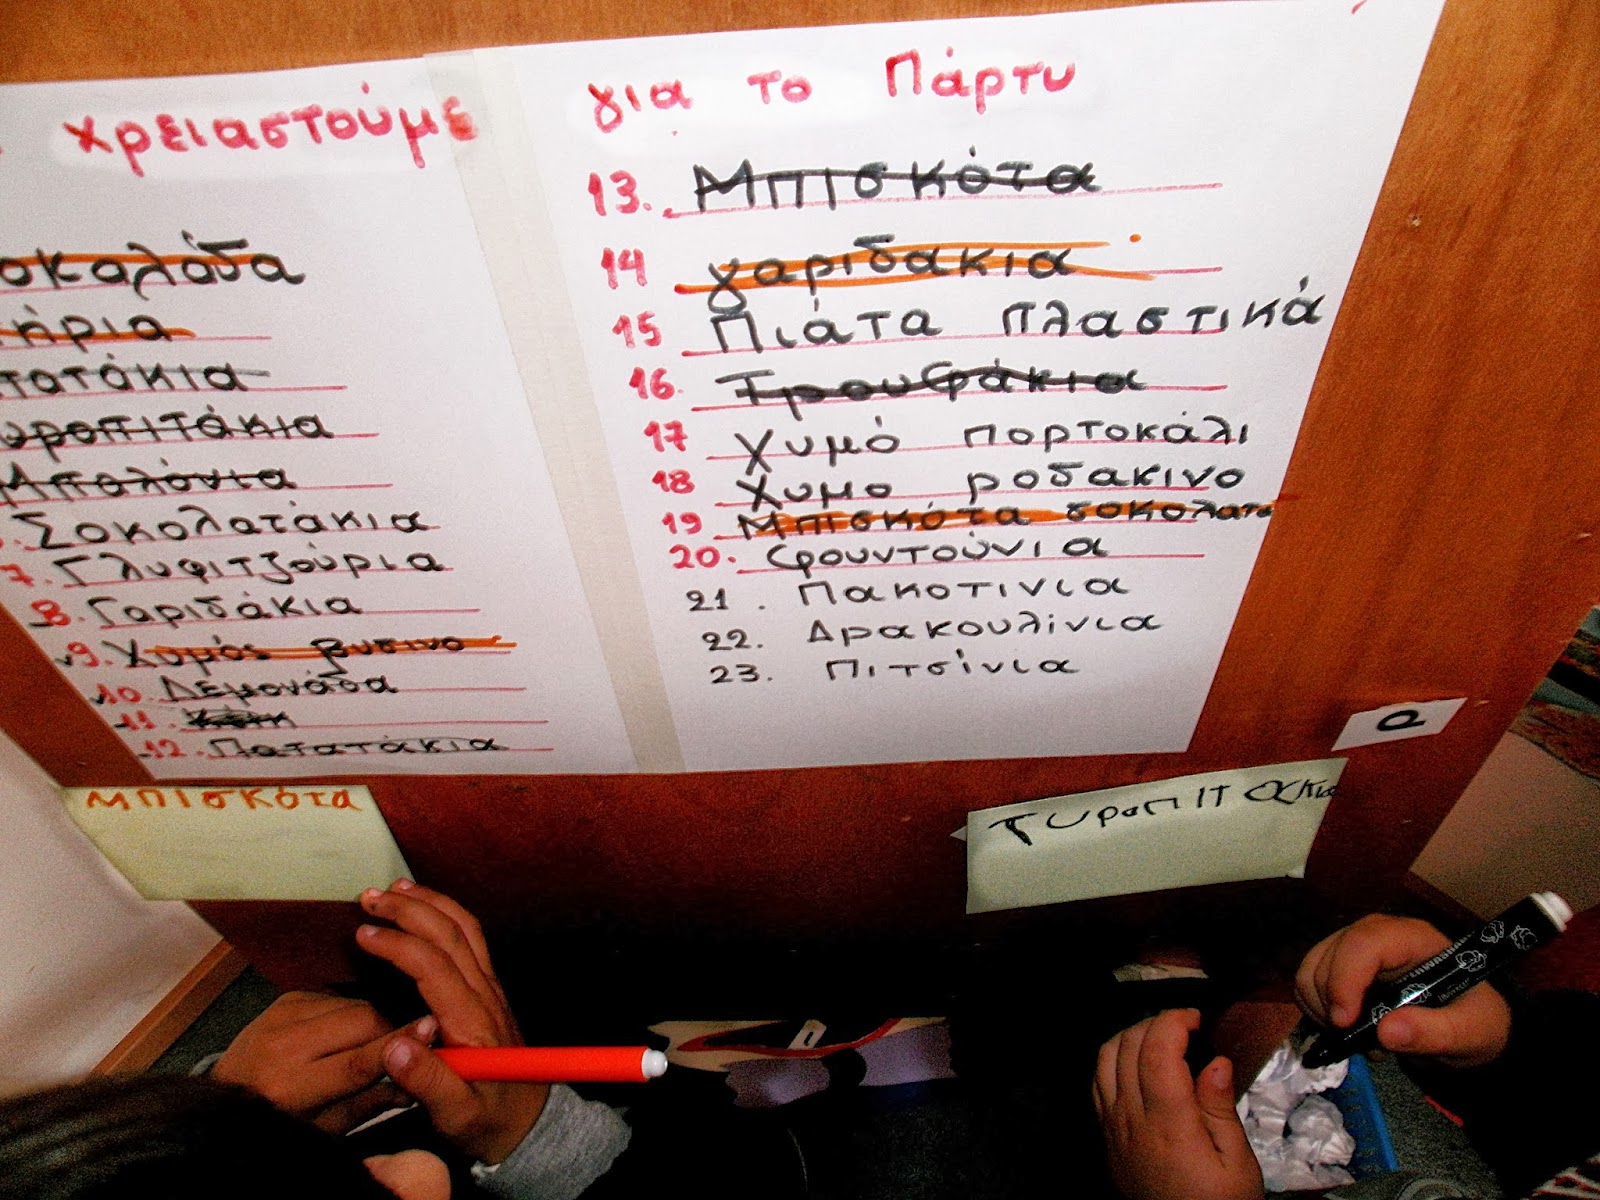 χρειαστούμε
οκολάδα
ήρια
τατάκια
υροπιτάκια
Μπαλόνια
Σοκολατάκια
7. Γλυφιτζούρια
8. Γαριδάκια
9. Χυμός βυσινο
10. Λεμονάδα
11.
12. Πατατάκια
για το Πάρτυ
13. Μπισκότα
14 γαριδάκια
15 Πιάτα πλαστικά
16. Τρουφάκια
17 Χυμό πορτοκάλι
18 Χυμο ροδακινο
19 Μπισκότα σοκολατα
20. Φρουντούνια
21. Πακοτίνια
22. Δρακουλίνια
23. Πιτσίνια
ΜΠΙΣΚΌΤΑ
Τυροπιτακια